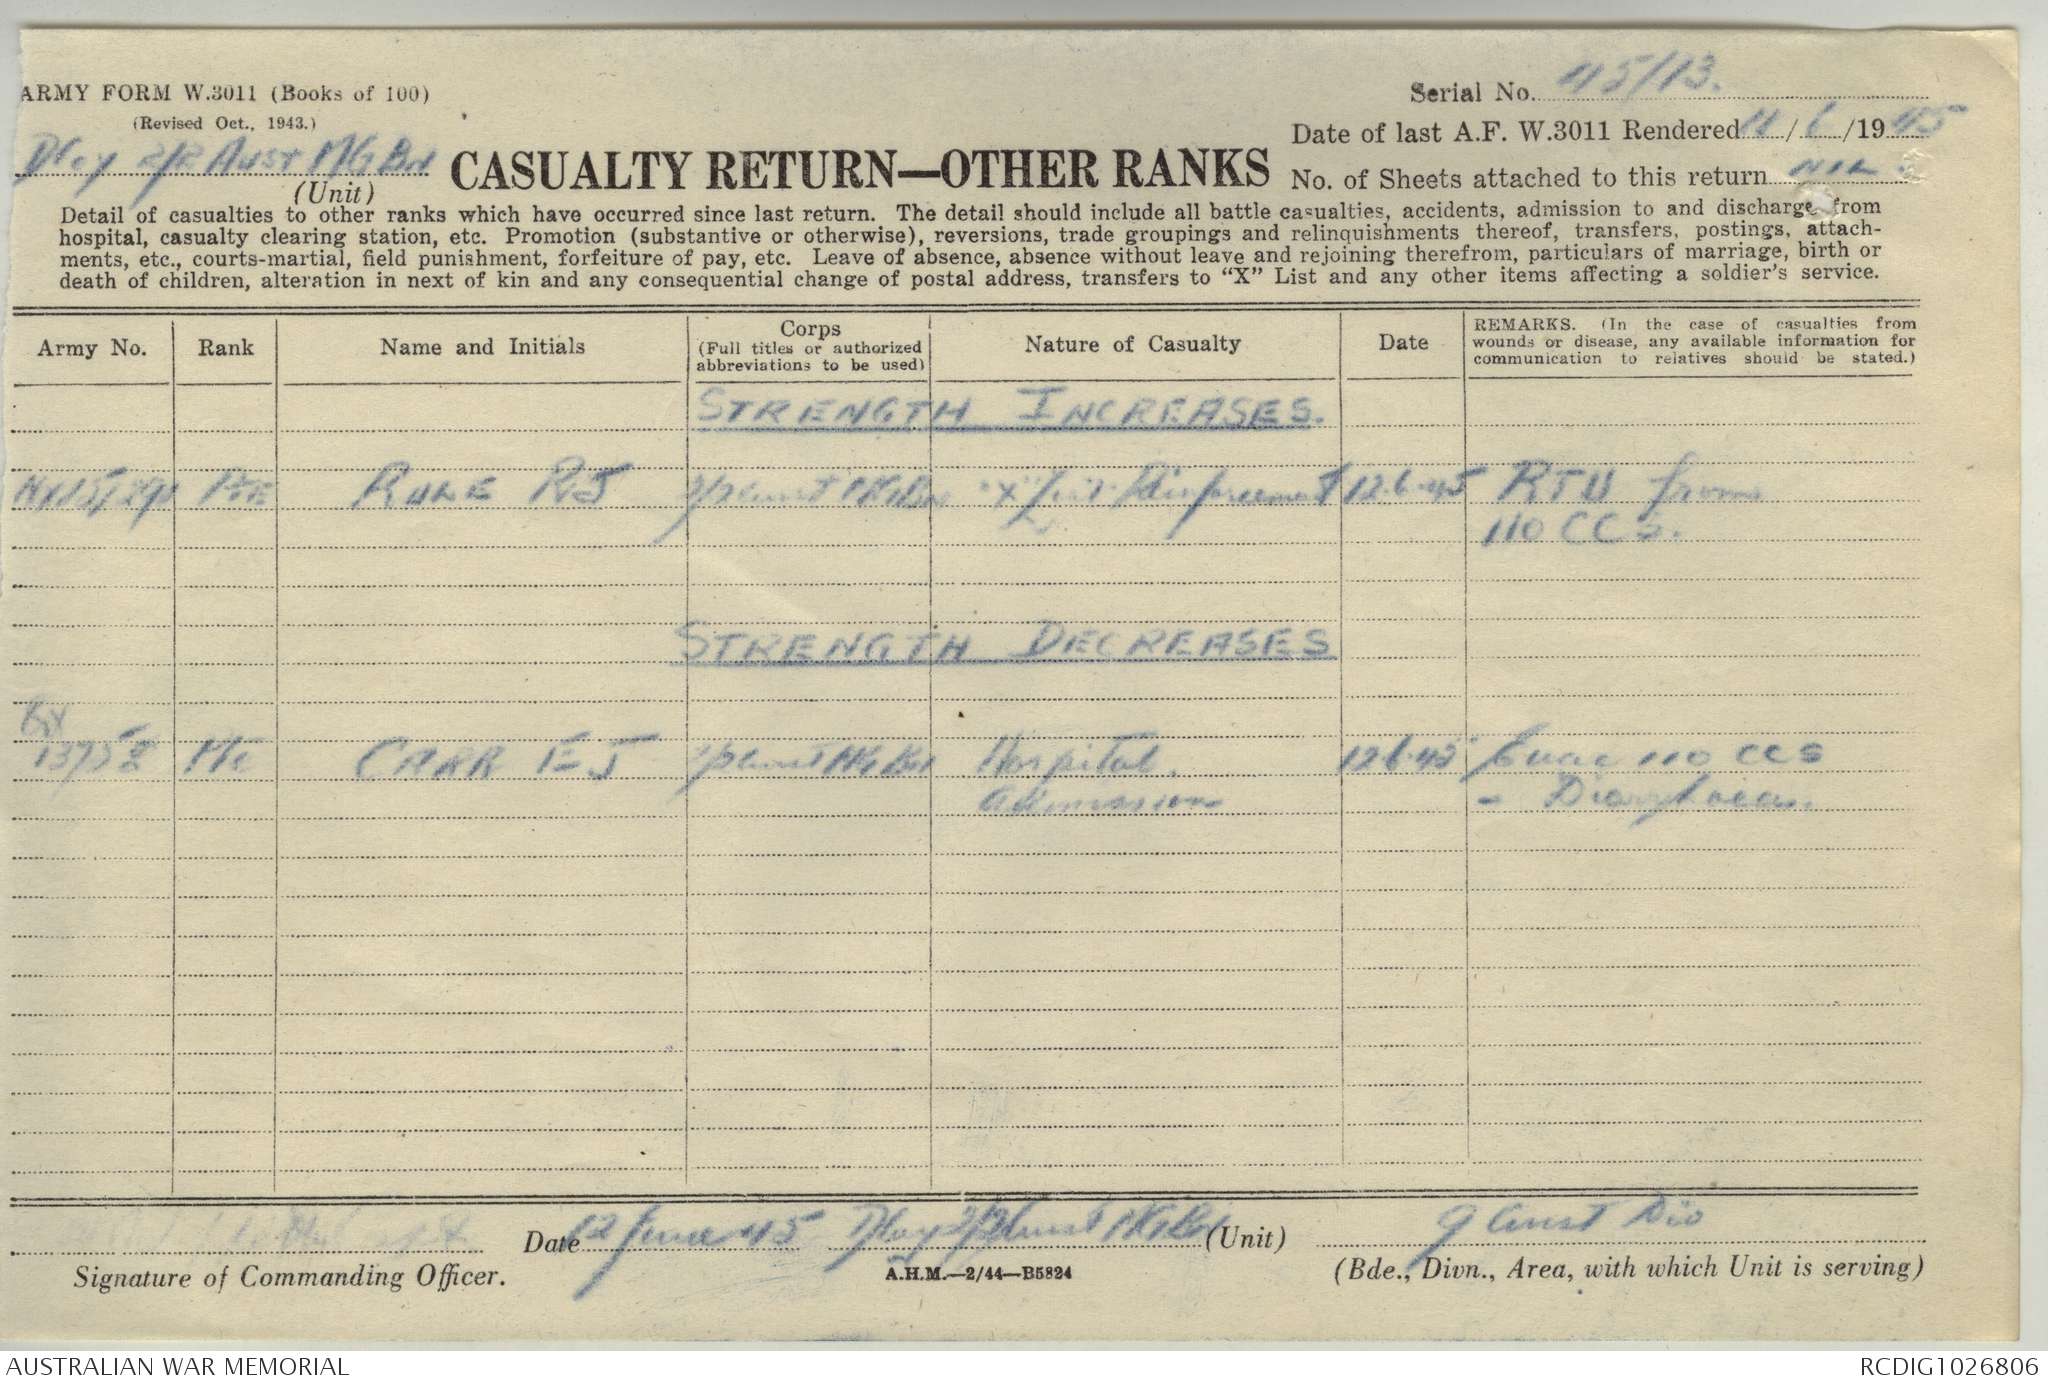 ARMY FORM W.3011 (Books of 100)
(Revised Oct., 1943.)
D Coy 2/2 Aust MG Bn
(Unit)
CASUALTY RETURN—OTHER RANKS
Serial No. 45/13.
Date of last A.F. W.3011 Rendered 11/6/1945
No. of Sheets attached to this return NIL
Detail of casualties to other ranks which have occurred since last return. The detail should include all battle casualties, accidents, admission to and discharge from
hospital, casualty clearing station, etc. Promotion (substantive or otherwise), reversions, trade groupings and relinquishments thereof, transfers, postings, attach-
ments, etc., courts-martial, field punishment, forfeiture of pay, etc. Leave of absence, absence without leave and rejoining therefrom, particulars of marriage, birth or
death of children, alteration in next of kin and any consequential change of postal address, transfers to "X" List and any other items affecting a soldier's service.
Army No.
Rank
Name and Initials
Corps
(Full titles or authorized
abbreviations to be used)
Nature of Casualty
Date
REMARKS. (In the case of casualties from
wounds or disease, any available information for
communication to relatives should be stated.)
STRENGTH INCREASES.
Pte RULE R J 2/2 Aust MG Bn "X" List Reinforcement 12.6.45 RTU from
110 CCS.
STRENGTH DECREASES
13752 Pte CARR E J 2/2 Aust MG Bn Hospital 12.6.45 Evac 110 CCS
Admission
Date 12 June 45 D Coy 2/2 Aust MG Bn (Unit) 9 Aust Div
Signature of Commanding Officer.
A.H.M.—2/44—B5824
(Bde., Divn., Area, with which Unit is serving)
AUSTRALIAN WAR MEMORIAL
RCDIG1026806